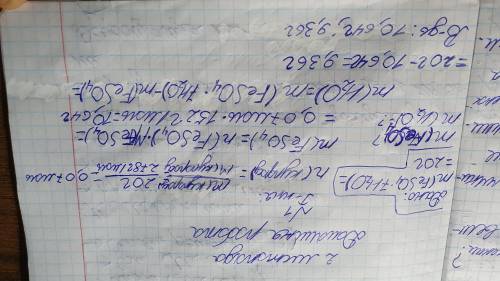 2 листопада
Домашня робота
№1
Дано:
m(FeSO₄·7H₂O)=
=20г
m(FeSO₄)?
m(H₂O)?
n(купорос)= m(купорос) = 20г / 278г/моль = 0,07моль
m(FeSO₄)=n(FeSO₄)·M(FeSO₄)=
=0,07моль·152г/моль=10,64г
m(H₂O)=m(FeSO₄·7H₂O)-m(FeSO₄)=
=20г-10,64г=9,36г
В-дь: 10,64г; 9,36г